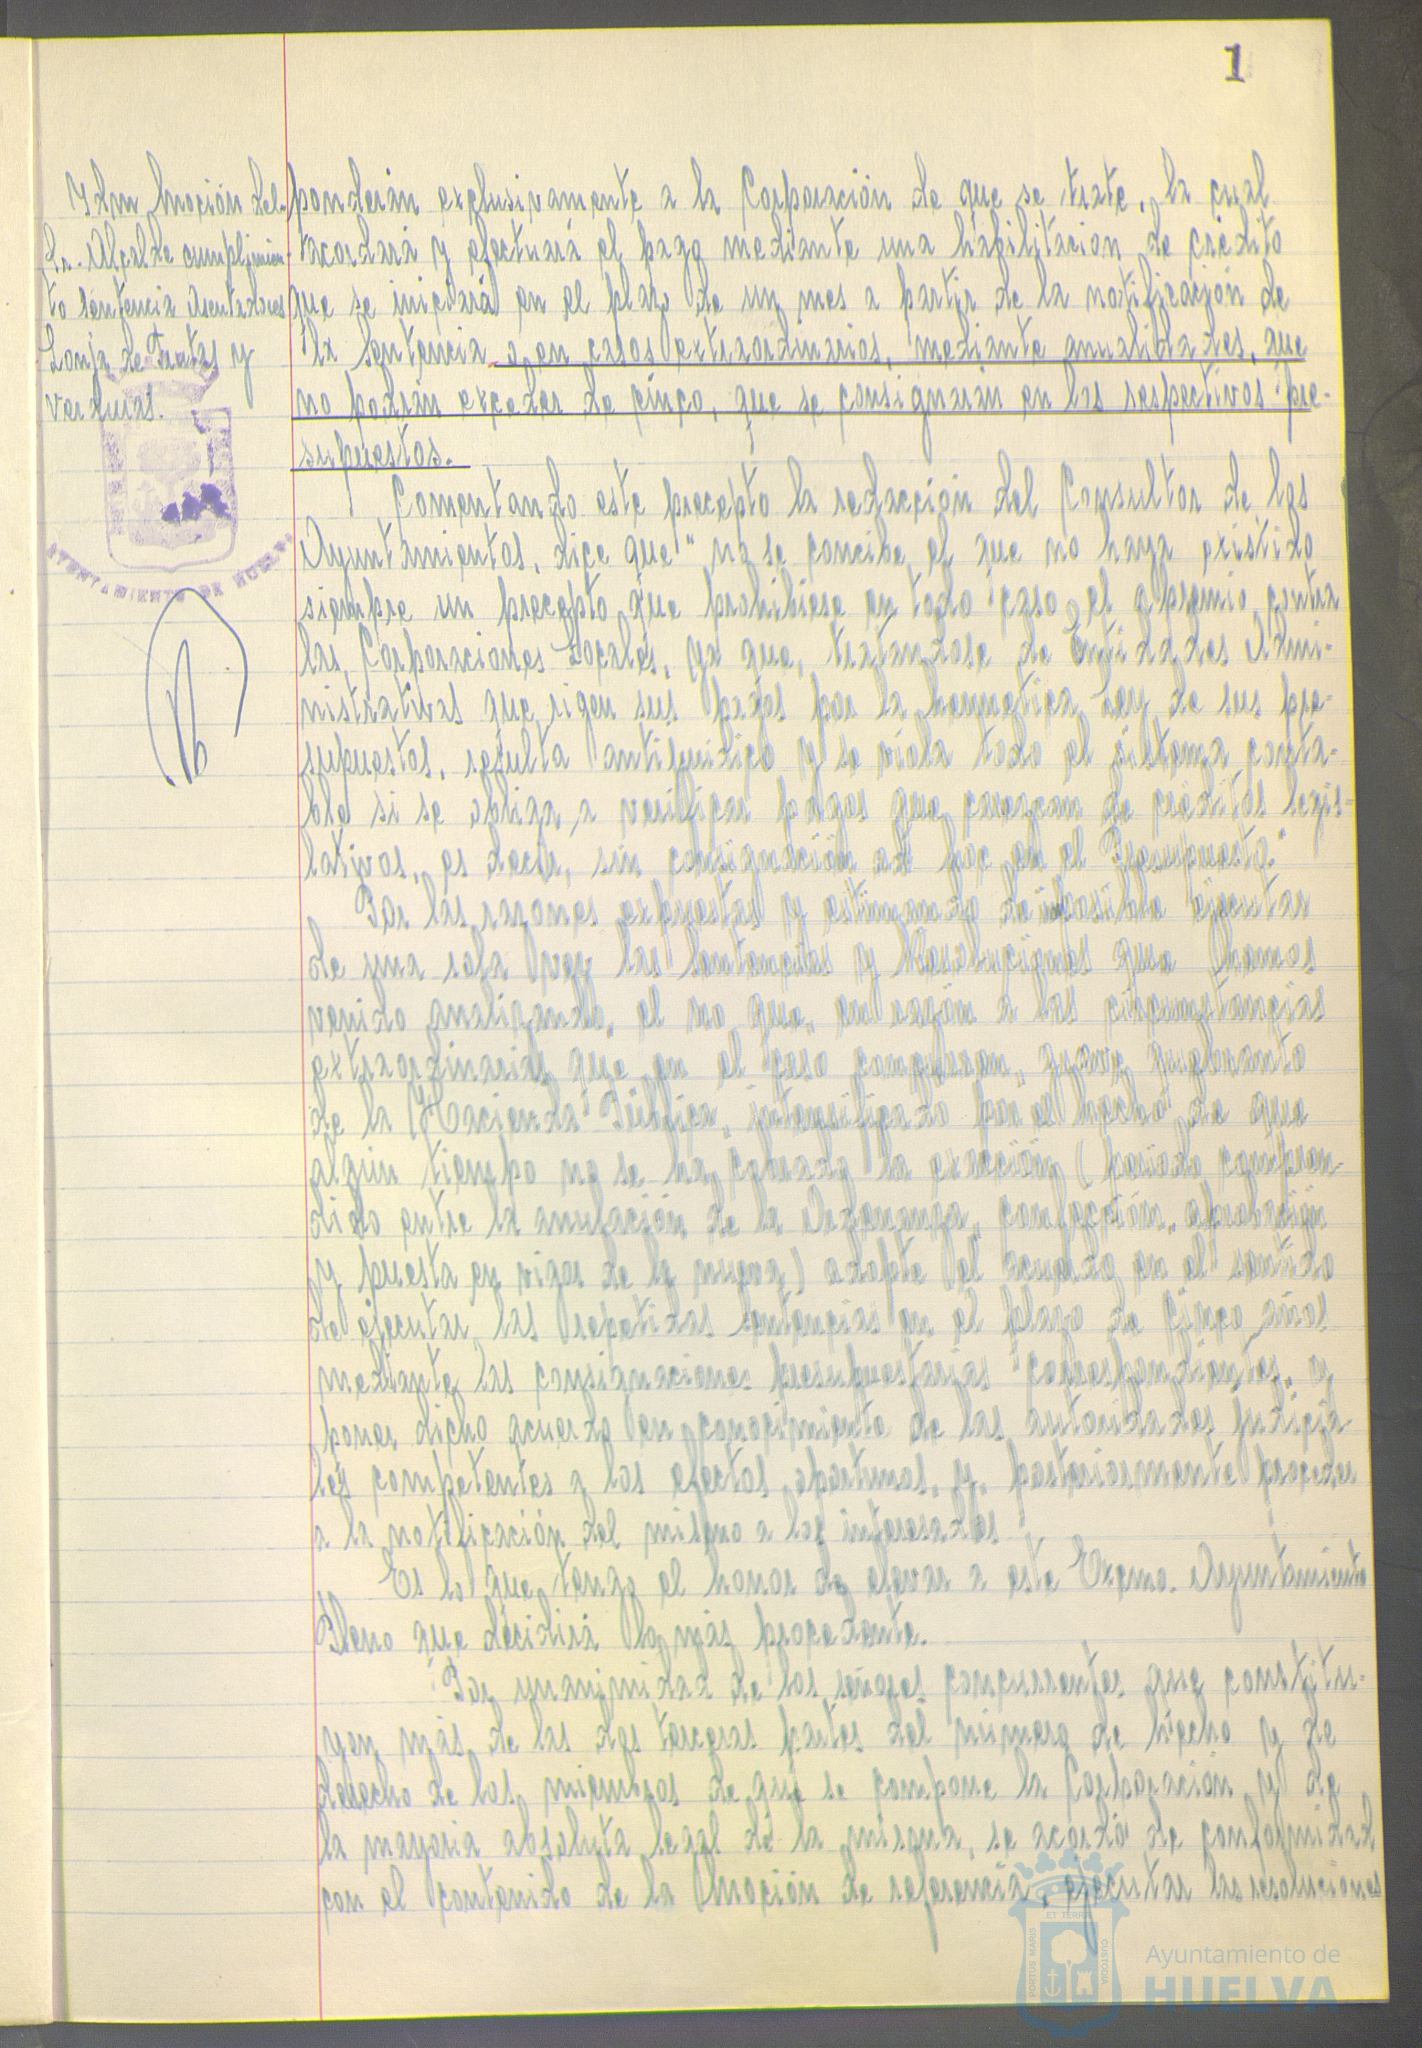 1
Idem Moción del
Sr. Alcalde cumplimien-
to sentencia Asentadores
Lonja de Frutas y
Verduras.
AYUNTAMIENTO DE HUELVA
ponderán exclusivamente a la Corporación de que se trate, la cual
acordará y efectuará el pago mediante una habilitación de crédito
que se iniciará en el plazo de un mes a partir de la notificación de
la Sentencia o en casos extraordinarios, mediante anualidades, que
no podrán exceder de cinco, que se consignarán en los respectivos pre-
supuestos.
Comentando este precepto la redacción del Consultor de los
Ayuntamientos, dice que "no se concibe el que no haya existido
siempre un precepto que prohibiese en todo caso el apremio contra
las Corporaciones Locales, ya que, tratandose de Entidades Admi-
nistrativas que rigen sus pagos por la hermetica Ley de sus pre-
supuestos, resulta antijuridico y se viola todo el sistema conta-
ble si se obliga a verificar pagos que carezcan de créditos legis-
lativos, es decir, sin consignación ad hoc en el Presupuesto."
Por las razones expuestas y estimando de imposible ejecutar
de una sola vez las Sentencias y Resoluciones que hemos
venido analizando, el no que, en razón a las circunstancias
extraordinarias que en el caso concurren, grave quebranto
de la Hacienda Pública, intensificado por el hecho de que
algún tiempo no se ha cobrado la exacción (periodo compren-
dido entre la anulación de la Ordenanza, confección, aprobación
y puesta en vigor de la nueva) adopte el acuerdo en el sentido
de ejecutar las repetidas sentencias en el plazo de Cinco años
mediante las consignaciones presupuestarias correspondientes, y
poner dicho acuerdo en conocimiento de las autoridades judicia-
les competentes a los efectos oportunos, y, posteriormente proceder
a la notificación del mismo a los interesados.
Es lo que tengo el honor de elevar a este Excmo. Ayuntamiento
Pleno que decidirá lo más procedente.
Por unanimidad de los señores concurrentes que constitu-
yen más de las dos terceras partes del número de hecho y de
derecho de los miembros de que se compone la Corporación y de
la mayoria absoluta legal de la misma, se acordó de conformidad
con el contenido de la Moción de referencia, ejecutar las resoluciones
PORTUS MARIS ET TERRAE CUSTODIA
Ayuntamiento de
HUELVA